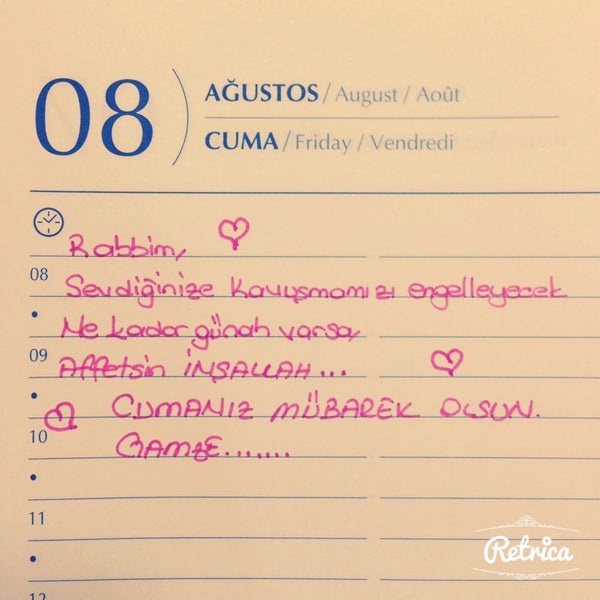 08
AĞUSTOS / August / Août
CUMA / Friday / Vendredi
Rabbim,
08
Sevdiğinize kavuşmamızı engelleyecek
Ne kadar günah varsa,
09
Affetsin İNŞALLAH...
CUMANIZ MÜBAREK OLSUN.
10
GAMZE.......
11
12
Retrica